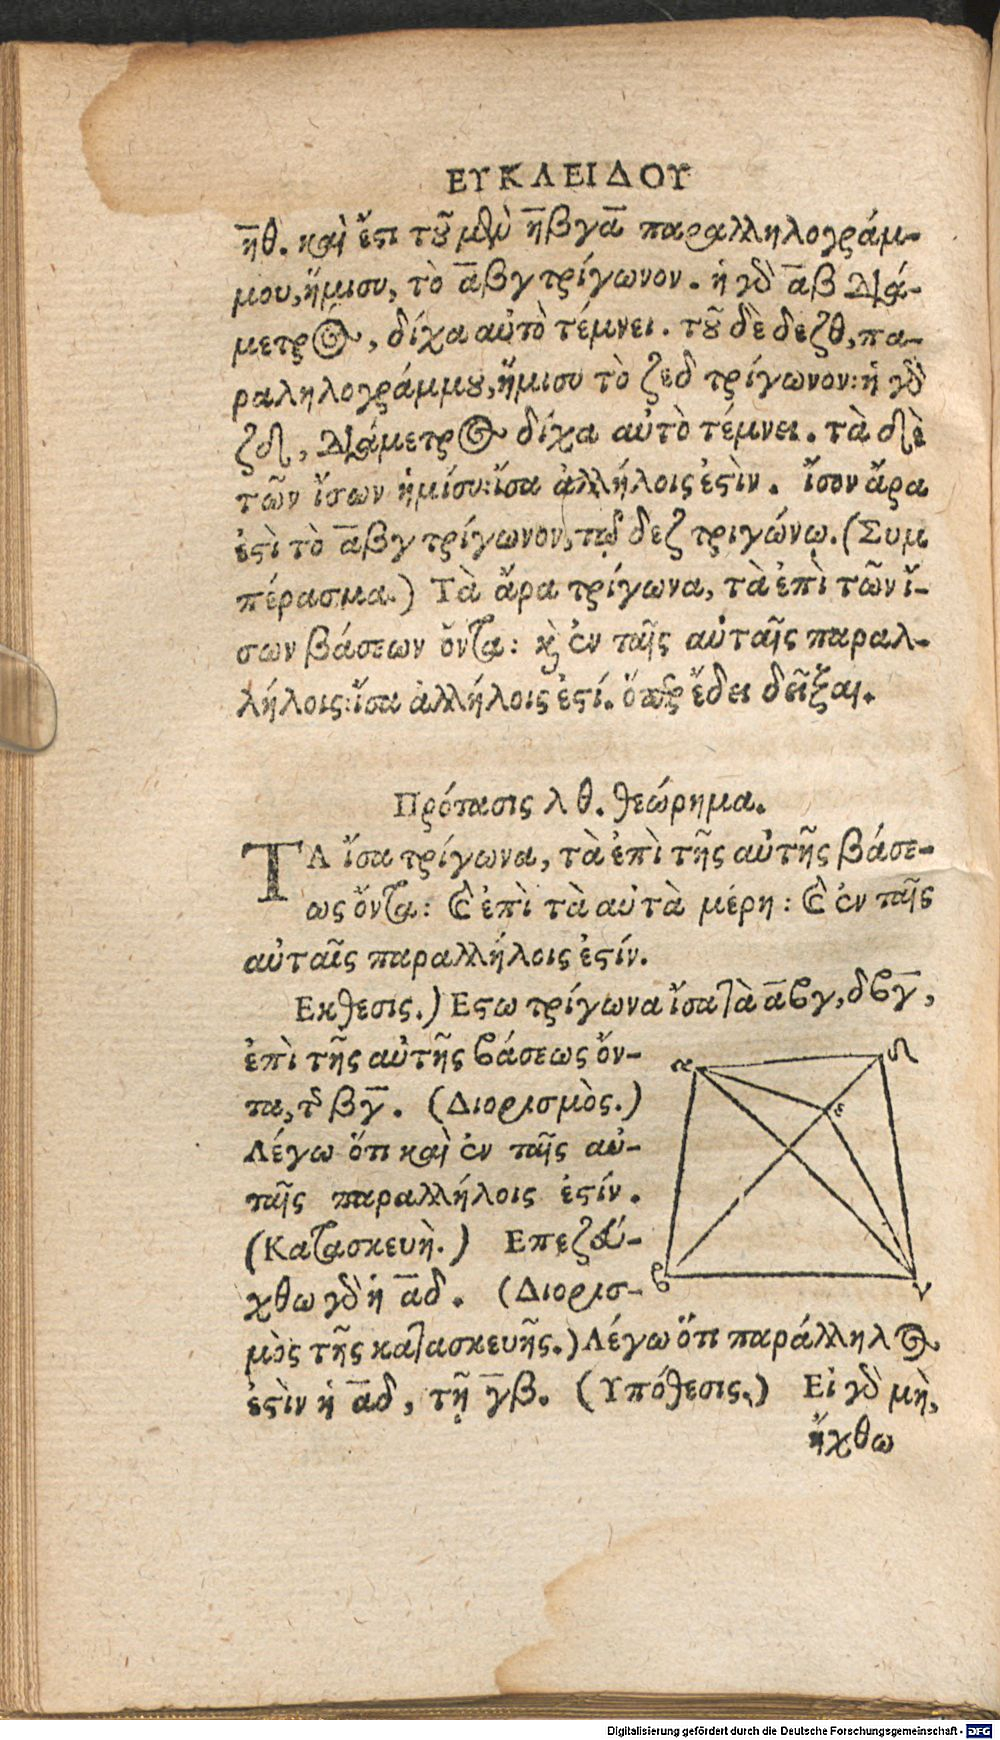 ΕΥΚΛΕΙΔΟΥ
η̅θ. καὶ ἔστι τοῦ μὲν η̅βγα̅ παραλληλογράμ-
μου, ἥμισυ, τὸ α̅βγ τρίγωνον. ἡ γὰρ α̅β διά-
μετρος, δίχα αὐτὸ τέμνει. τοῦ δὲ δεζθ, πα-
ραληλογράμμου, ἥμισυ τὸ ζεδ τρίγωνον: ἡ γὰρ
ζδ, διάμετρος δίχα αὐτὸ τέμνει. τὰ δὲ
τῶν ἴσων ἡμίσυ: ἴσα ἀλλήλοις ἐστὶν. ἴσον ἄρα
ἐστὶ τὸ α̅βγ τρίγωνον, τῷ δεζ τριγώνῳ. (Συμ
πέρασμα.) Τὰ ἄρα τρίγωνα, τὰ ἐπὶ τῶν ἴ-
σων βάσεων ὄντα: καὶ ἐν ταῖς αὐταῖς παραλ-
λήλοις: ἴσα ἀλλήλοις ἐστί. ὅπερ ἔδει δεῖξαι.
Πρότασις λθ. θεώρημα.
ΤΑ ἴσα τρίγωνα, τὰ ἐπὶ τῆς αὐτῆς βάσε-
ως ὄντα: καὶ ἐπὶ τὰ αὐτὰ μέρη: καὶ ἐν ταῖς
αὐταῖς παραλλήλοις ἐστίν.
Εκθεσις.) Εστω τρίγωνα ἴσα τὰ α̅βγ, δβγ̅,
ἐπὶ τῆς αὐτῆς βάσεως ὄν-
τα, τῆς βγ̅. (Διορισμὸς.)
Λέγω ὅτι καὶ ἐν ταῖς αὐ-
ταῖς παραλλήλοις ἐστίν.
(Κατασκευὴ.) Επεζεύ-
χθω γὰρ ἡ α̅δ. (Διορισ-
μὸς τῆς κατασκευῆς.) Λέγω ὅτι παράλληλος
ἐστὶν ἡ α̅δ, τῇ γ̅β. (Υπόθεσις.) Εἰ γὰρ μὴ,
ἤχθω
α
δ
ε
β
γ
Digitalisierung gefördert durch die Deutsche Forschungsgemeinschaft - DFG